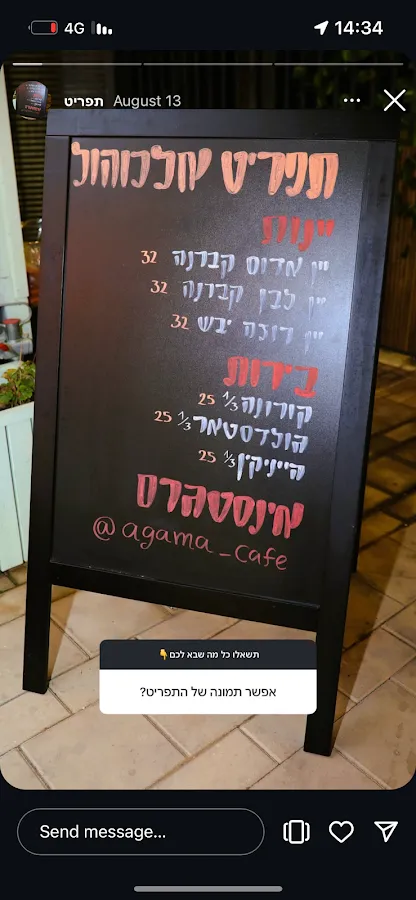 4G 14:34
תפריט August 13
תפריט אלכוהול
יינות
יין אדום קברנה 32
יין לבן קברנה 32
יין רוזה יבש 32
בירות
קורונה 1/3 25
גולדסטאר 1/3 25
היינקין 1/3 25
אינסטגרם
@agama_cafe
תשאלו כל מה שבא לכם👇
אפשר תמונה של התפריט?
Send message...